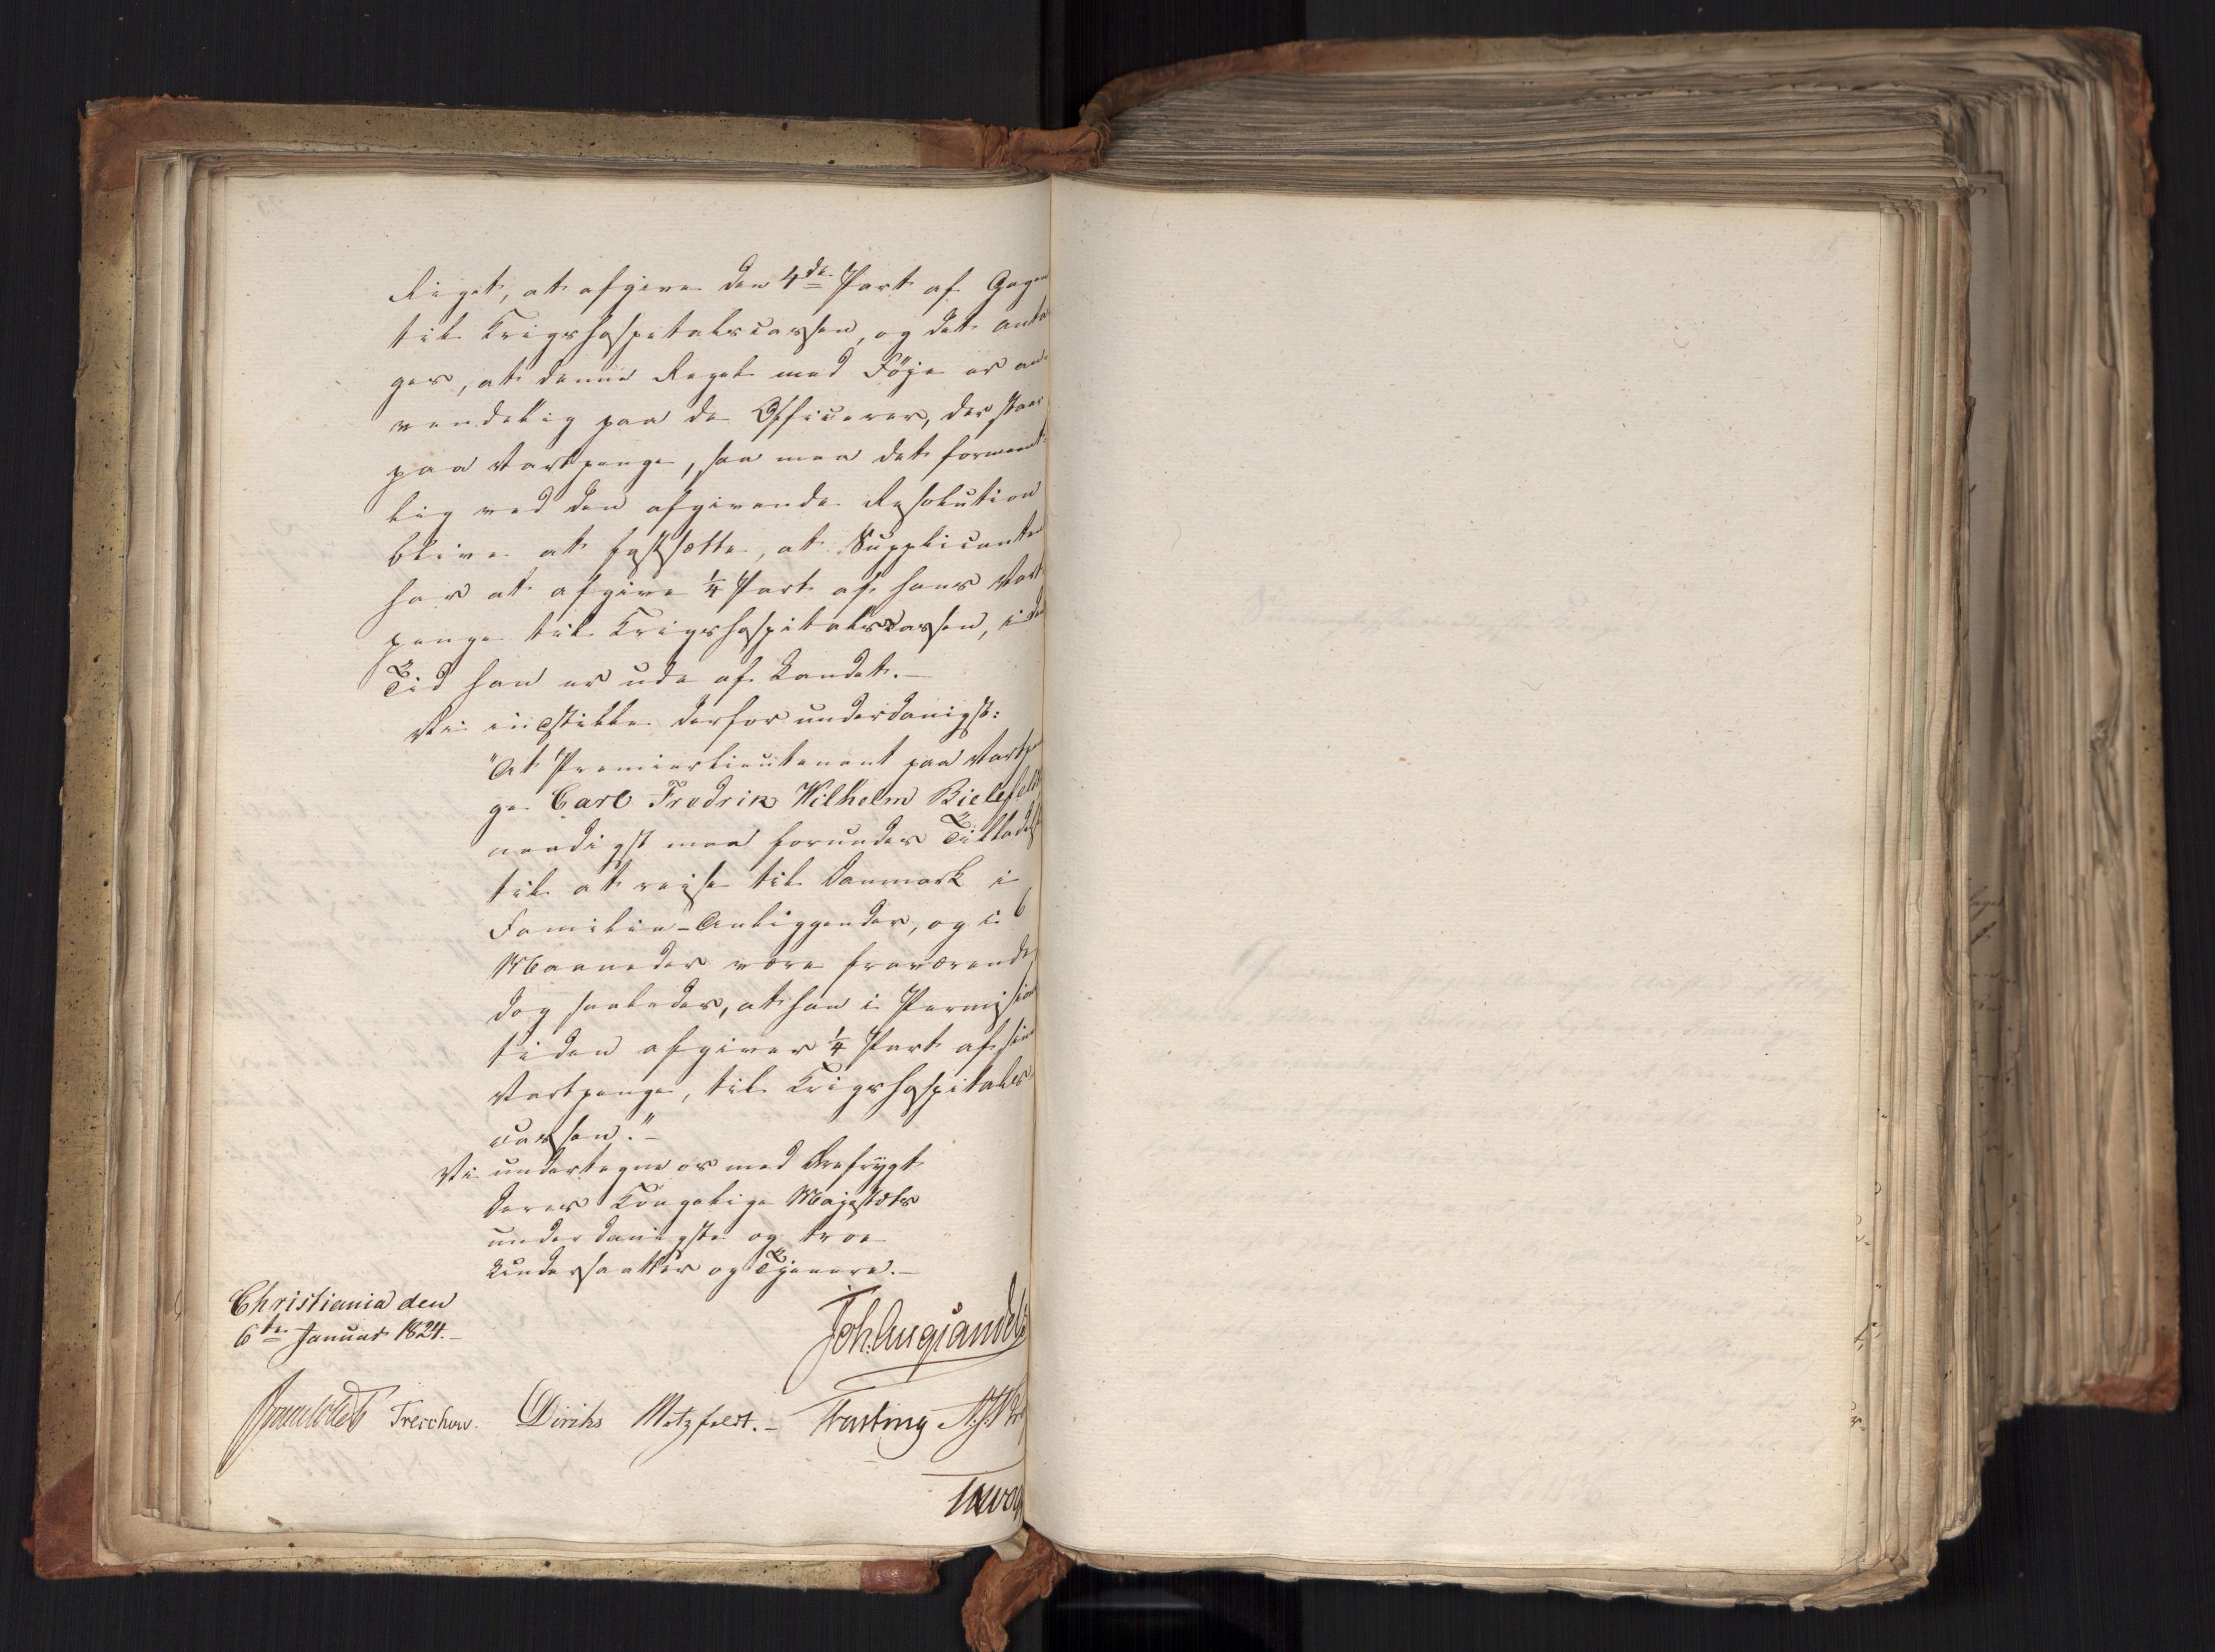 Riget, at afgive den 4de Part af Gagen
til Krigshospitalscassen, og det anta
ges, at denne Regel med Föje er an
vendelig paa de Officerer, der staae
paa Vartpenge, saa maa det forment
lig ved den afgivende Resolution
blive at fastsætte, at Supplicanten
har at afgive 1/4 Part af hans Vart
penge til Krigshospitalscassen, i den
Tid han er ude af Landet.–
Vi indstille derfor underdanigst:
"At Premierlieutenant paa Vartpen
ge Carl Fredrik Wilhelm Bielefeldt
naadigst maa forundes Tilladelse
til at reise til Danmark i
Familie-Anliggender, og i 6
Maaneder være fraværende,
dog saaledes, at han i Permissions
tiden afgiver 1/4 Part af sine
Vartpenge, til Krigshospitals
cassen."–
Vi undertegne os med Ærefrygt
Deres Kongelige Majestæts
underdanigste og troe
Undersaatter og Tjenere.–
Christiania den
6te Januar 1824.–
Joh. Aug. Sandels
Sommerhielm Treschow. Diriks Motzfeldt.– Fasting